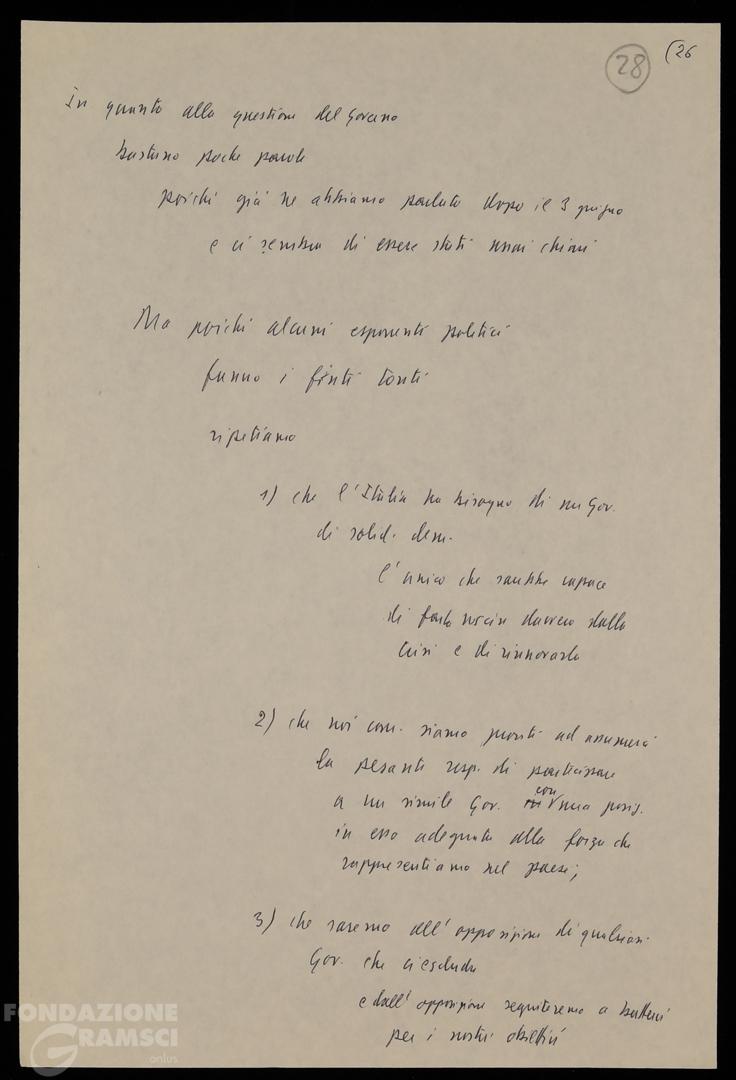 28 (26
In quanto alla questione del Governo
bastano poche parole
poiché già ne abbiamo parlato dopo il 3 giugno
e ci sembra di essere stati assai chiari
Ma poiché alcuni esponenti politici
fanno i finti tonti
ripetiamo
1) che l'Italia ha bisogno di un Gov.
di solid. dem.
l'unico che sarebbe capace
di farla uscire davvero dalla
crisi e di rinnovarla
2) che noi com. siamo pronti ad assumerci
la pesante resp. di partecipare
a un simile Gov. con una posiz.
in esso adeguata alla forza che
rappresentiamo nel paese;
3) che saremo all'opposizione di qualsiasi
Gov. che ci escluda
e dall'opposizione seguiteremo a batterci
per i nostri obiettivi
FONDAZIONE
GRAMSCI
onlus